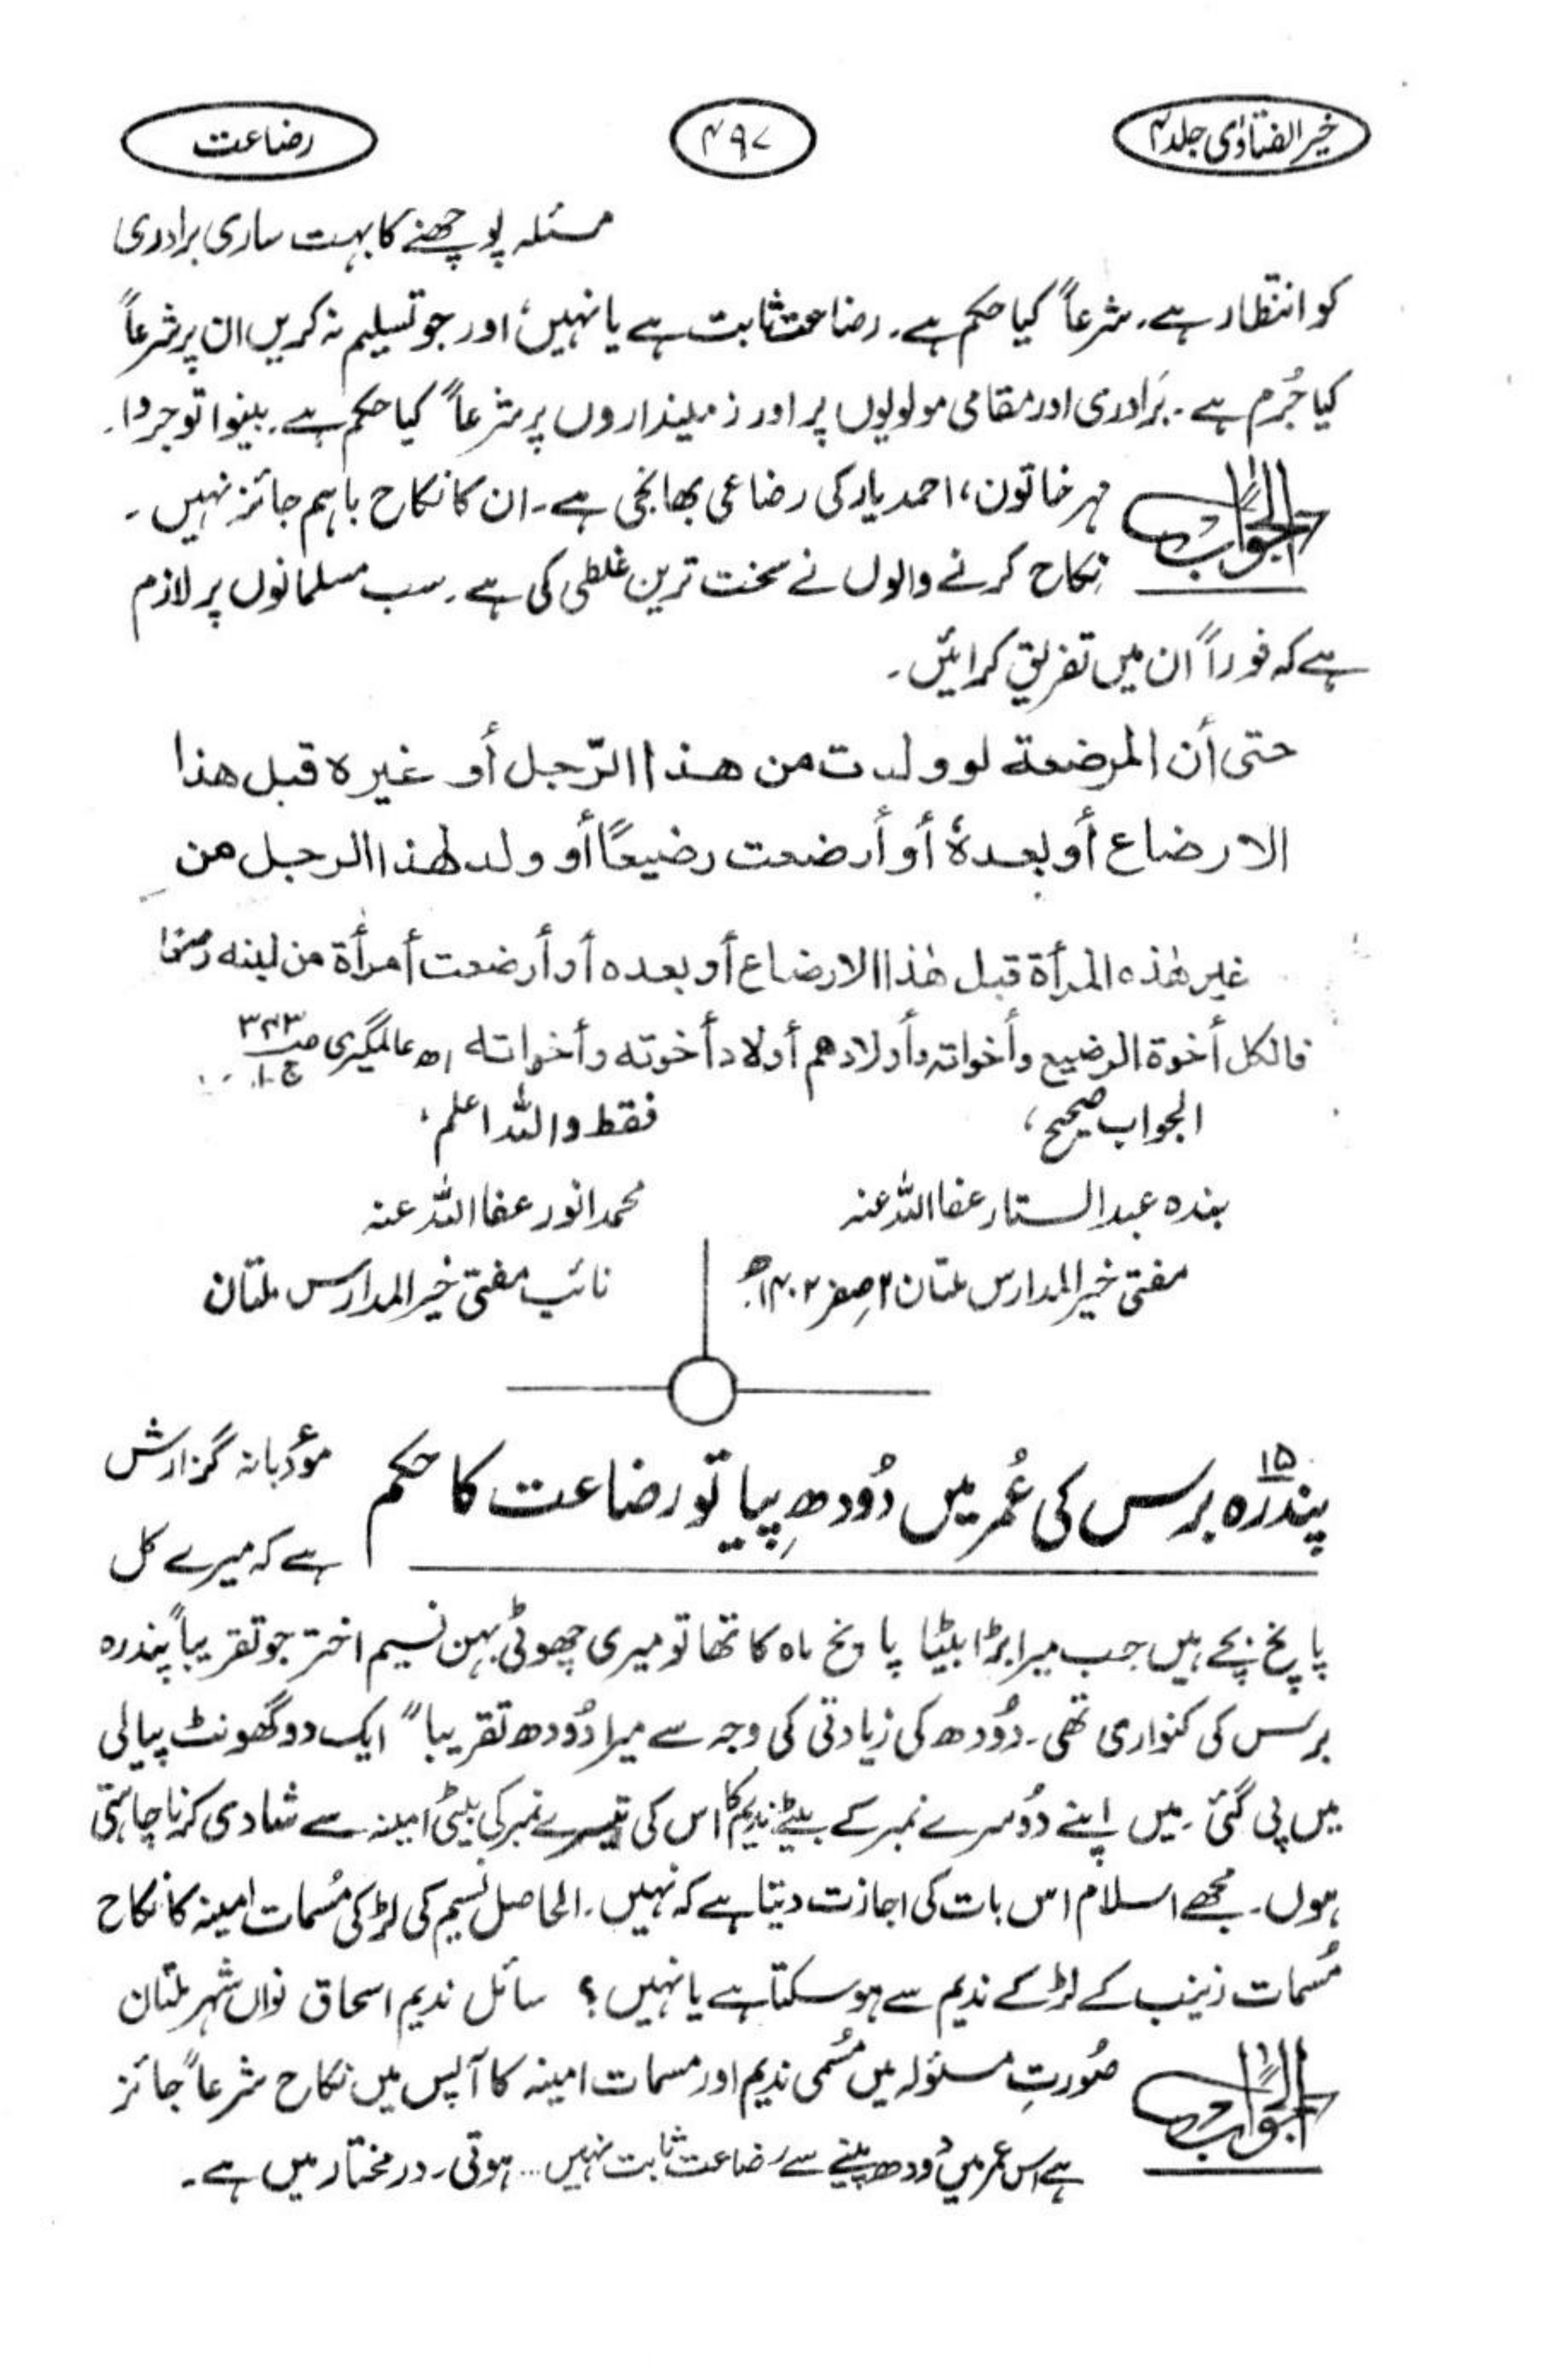 خیر الفتاوٰی جلد ۴
۴۹۷
رضاعت
مسئلہ پوچھنے کا بہت ساری برادری
کو انتظار ہے۔ شرعاً کیا حکم ہے۔ رضاعت ثابت ہے یا نہیں؛ اور جو تسلیم نہ کریں ان پر شرعاً
کیا جُرم ہے۔ بَرادری اور مقامی مولویوں پر اور زمینداروں پر شرعاً کیا حکم ہے۔ بینوا توجروا۔
الجواب
مہر خاتون، احمد یار کی رضاعی بھانجی ہے۔ ان کا نکاح باہم جائز نہیں۔
نکاح کرنے والوں نے سخت ترین غلطی کی ہے۔ سب مسلمانوں پر لازم
ہے کہ فوراً ان میں تفریق کرائیں۔
حتی أن المرضعة لو ولدت من هذا الرّجل أو غيره قبل هذا
الارضاع أو بعدهٗ أو أرضعت رضيعًا أو ولد لهذا الرجل من
غير هٰذه المرأة قبل هٰذا الارضاع أو بعده أو أرضعت أمرأة من لبنه رضيعا
فالكل أخوة الرضيع وأخواته وأولادهم أولاد أخوته وأخواته اھ عالمگیری ص۳۴۳ ج۱۔
الجواب صحیح،
فقط واللہ اعلم،
بندہ عبدالستار عفا اللہ عنہ
محمد انور عفا اللہ عنہ
مفتی خیر المدارس ملتان ۲ صفر ۱۴۰۲ھ
نائب مفتی خیر المدارس ملتان
۱۵
پندرہ برس کی عُمر میں دُودھ پیا تو رضاعت کا حکم
مؤدبانہ گزارش
ہے کہ میرے کل
پانچ بچے ہیں جب میرا بڑا بیٹا پانچ ماہ کا تھا تو میری چھوٹی بہن نسیم اختر جو تقریباً پندرہ
برس کی کنواری تھی۔ دُودھ کی زیادتی کی وجہ سے میرا دُودھ تقریباً ایک دو گھونٹ پیالی
میں پی گئی۔ میں اپنے دُوسرے نمبر کے بیٹے ندیم کا اس کی تیسرے نمبر کی بیٹی امینہ سے شادی کرنا چاہتی
ہوں۔ مجھے اسلام اس بات کی اجازت دیتا ہے کہ نہیں۔ الحاصل نسیم کی لڑکی مُسمات امینہ کا نکاح
مُسمات زینب کے لڑکے ندیم سے ہو سکتا ہے یا نہیں؟ سائل ندیم اسحاق نواں شہر ملتان
الجواب
صُورتِ مسئولہ میں مُسمی ندیم اور مسمات امینہ کا آپس میں نکاح شرعاً جائز
ہے اس عمر میں دُودھ پینے سے رضاعت ثابت نہیں... ہوتی۔ درمختار میں ہے۔